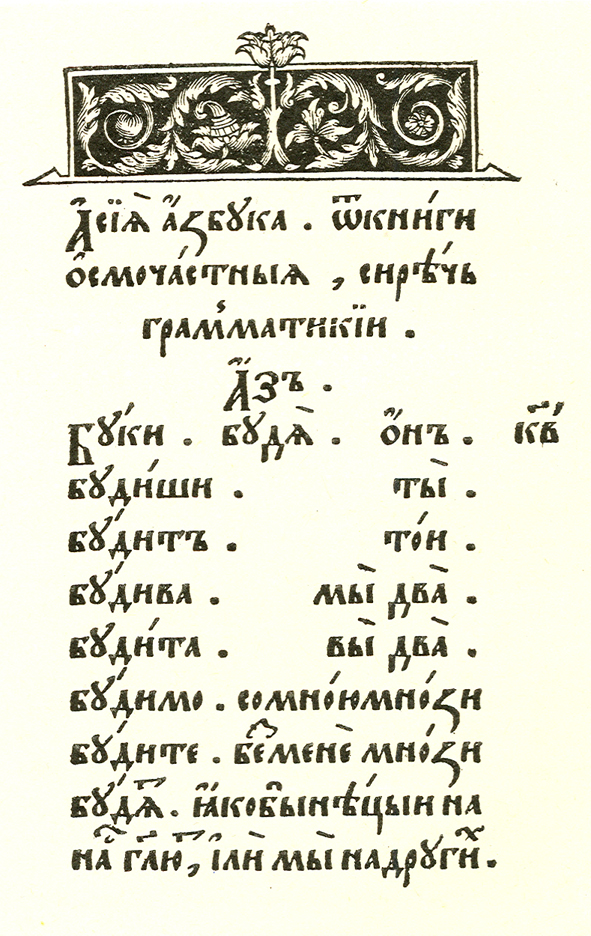 А҆сїѧ̀ а҆́збꙋка . ѿкни́ги
о҆смоча́стныѧ , сирѣ́чь
грам̾матикїи .
А҆́зъ .
Бꙋ́ки . бꙋдѧ̀ . о҆́нъ . к҃в
бꙋди́ши . ты̀ .
бꙋ́дитъ . то́и .
бꙋ́дива . мы̀ два̀ .
бꙋди́та . вы̀ два̀ .
бꙋ́димо . сомно́юмно́ѕи
бꙋ́дите . беⷥменѐ мно́ѕи
бꙋ́дѧⷮ . ꙗ҆кобы нѣ́цыи на
наⷭ҇ гл҃юⷮ , їлѝ мы̀ надрꙋги́ⷯ .